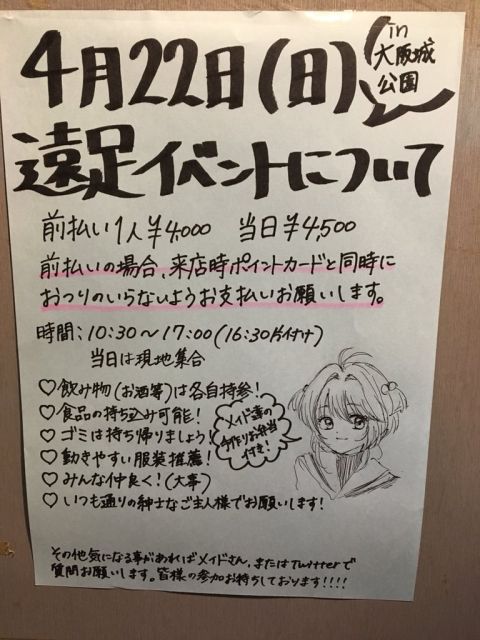 4月22日(日)
in
大阪城
公園
遠足イベントについて
前払い1人¥4,000 当日¥4,500
前払いの場合、来店時ポイントカードと同時に
おつりのいらないようお支払いお願いします。
時間:10:30～17:00(16:30片付け)
当日は現地集合
♡飲み物(お酒等)は各自持参!
♡食品の持ち込み可能!
♡ゴミは持ち帰りましょう!
♡動きやすい服装推薦!
♡みんな仲良く!(大事)
♡いつも通りの紳士なご主人様でお願いします!
メイド達の
手作りお弁当
付き!
その他気になる事があればメイドさん、またはTwitterで
質問お願いします。皆様の参加お待ちしております!!!!